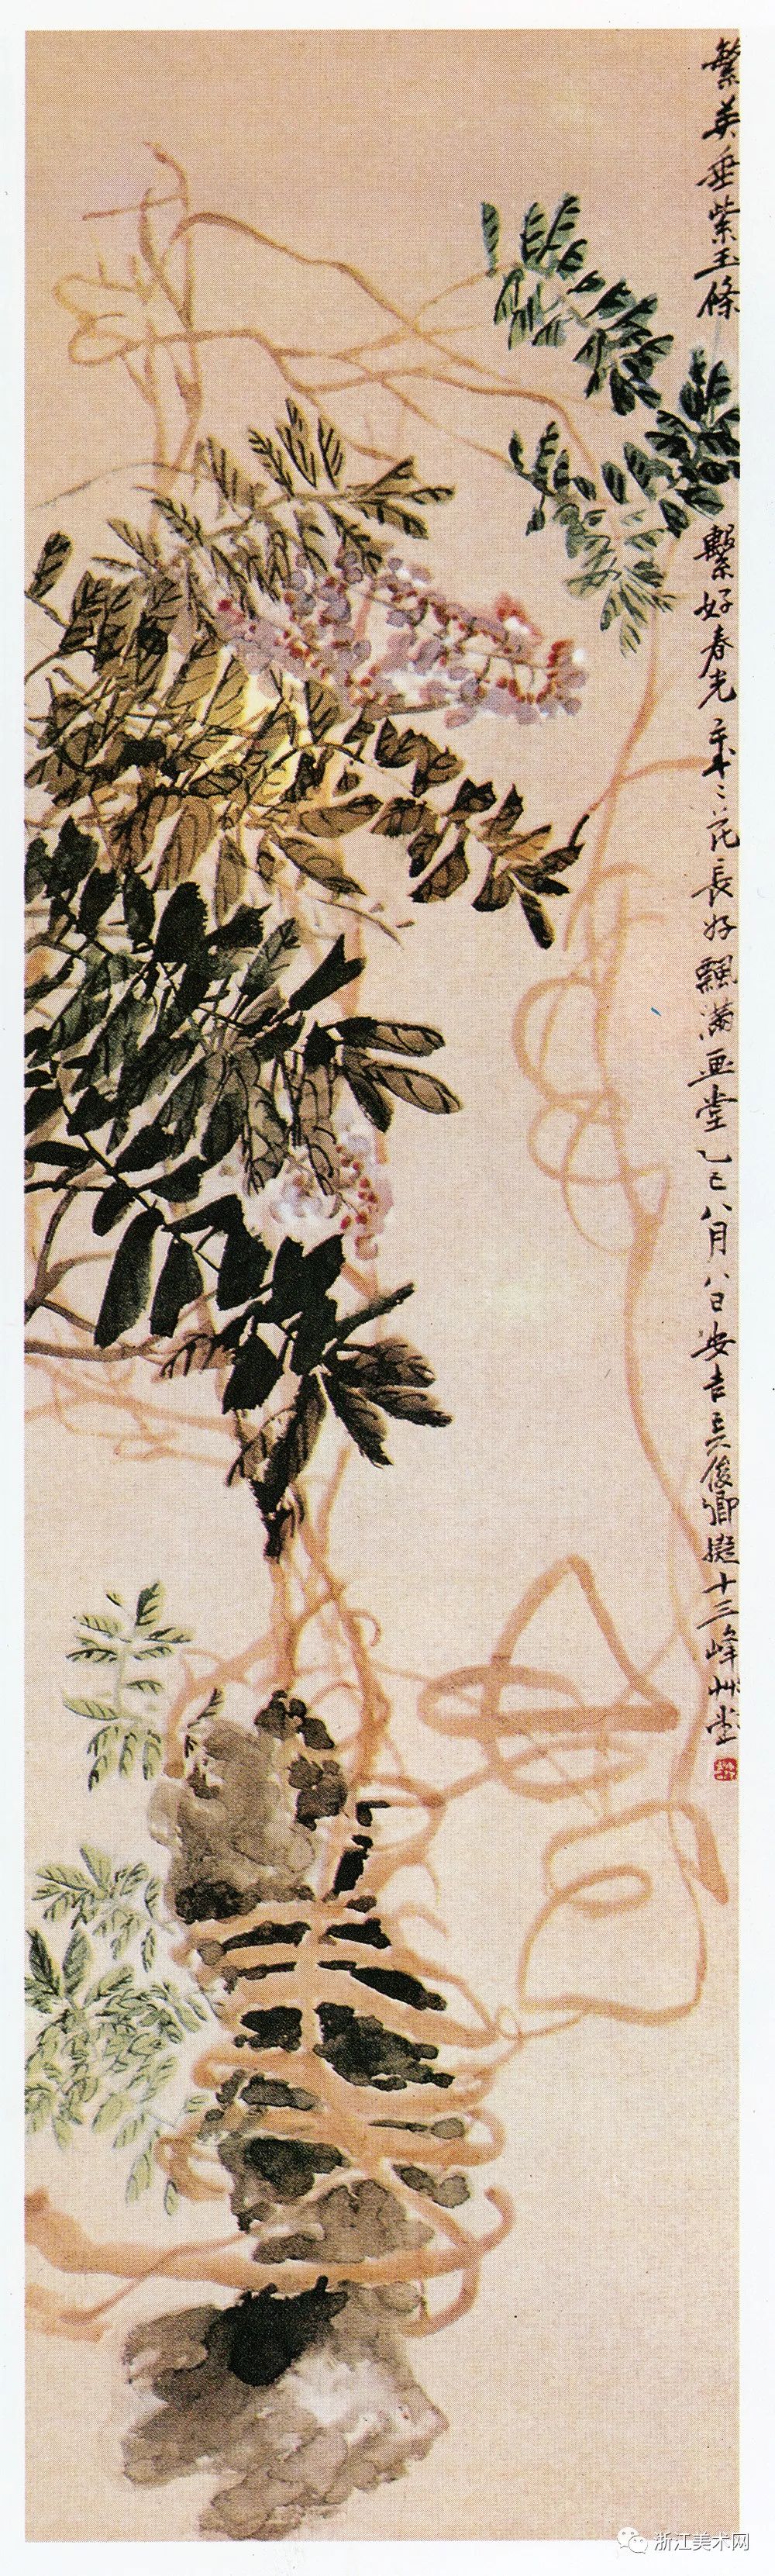 繁英垂紫玉條
繫好春光
花長好飄滿画堂乙巳八月八日安吉吳俊卿擬十三峰艸堂
浙江美术网